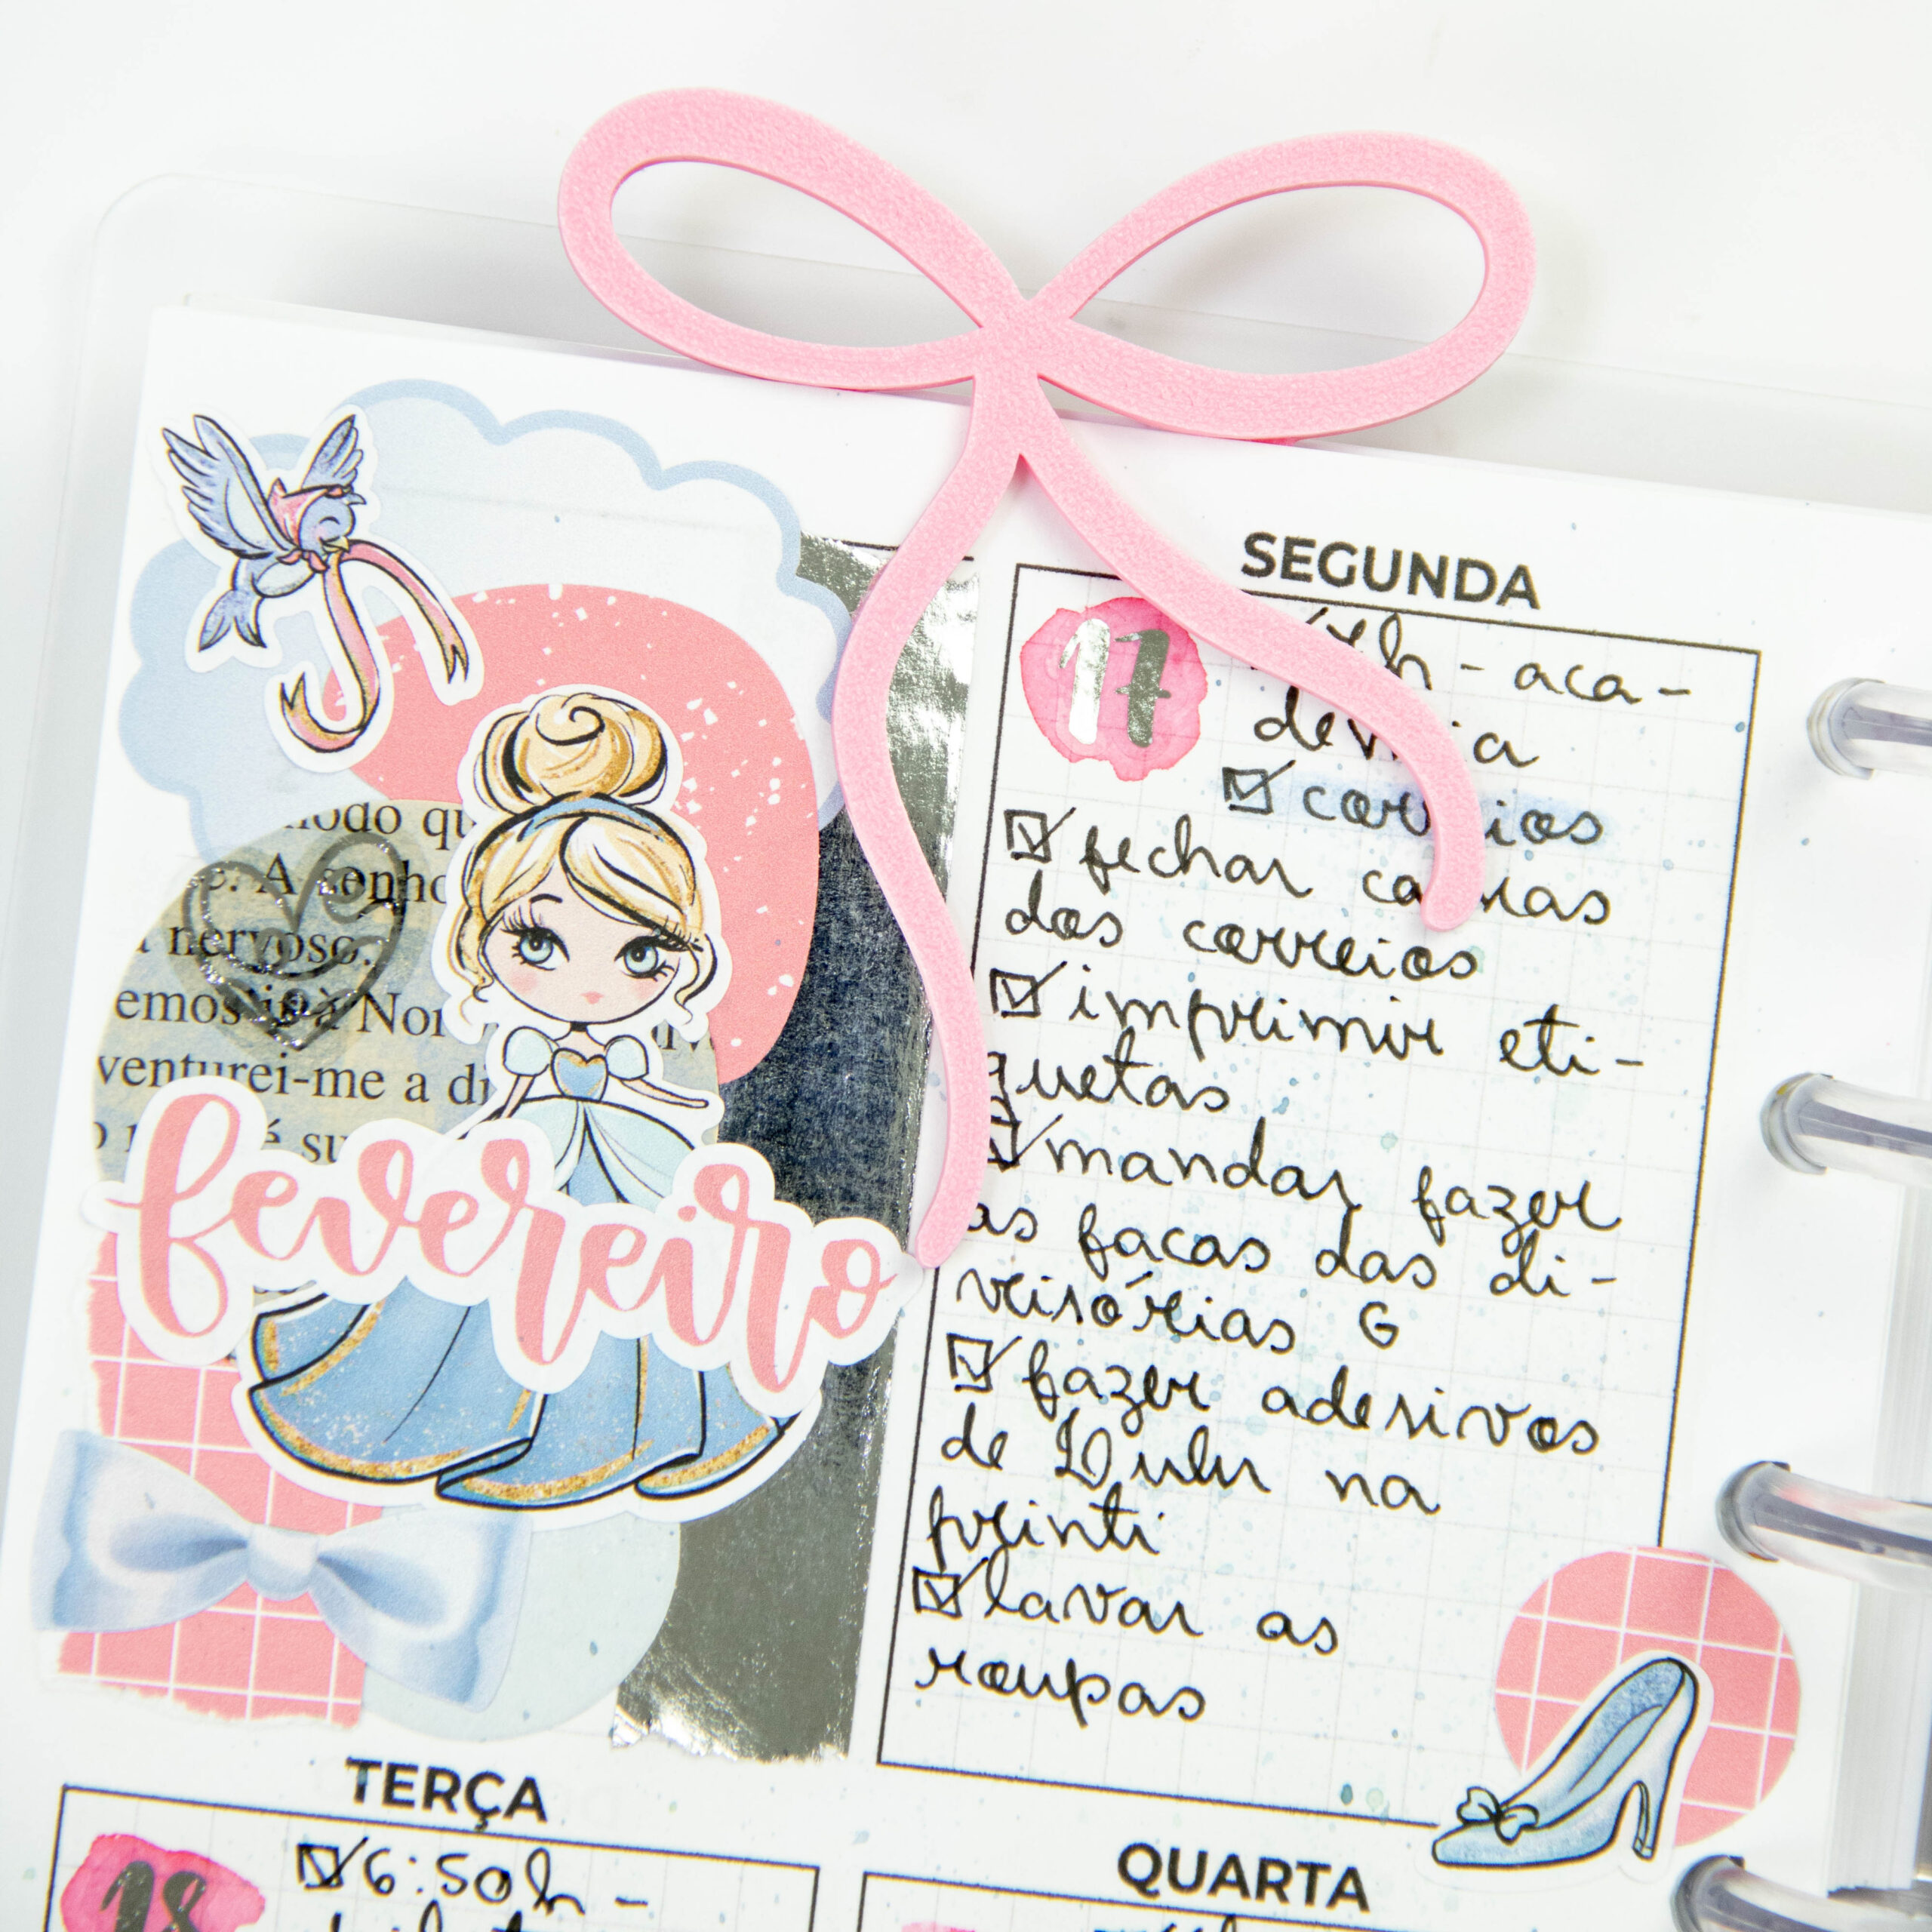 modo qu
A senho
nervoso.
emos ir à Nor
venturei-me a di
é su
fevereiro
SEGUNDA
17
7h - aca-
demia
correios
fechar caixas
dos correios
imprimir eti-
quetas
mandar fazer
as facas das di-
visórias G
fazer adesivos
de Lulu na
printi
lavar as
roupas
TERÇA
18
6:50h -
QUARTA